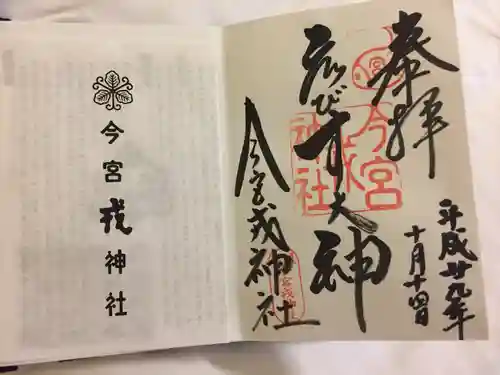 今宮戎神社
奉拝
平成廿九年
十月十四日
ゑびす大神
今宮戎神社
今宮戎神社
宮